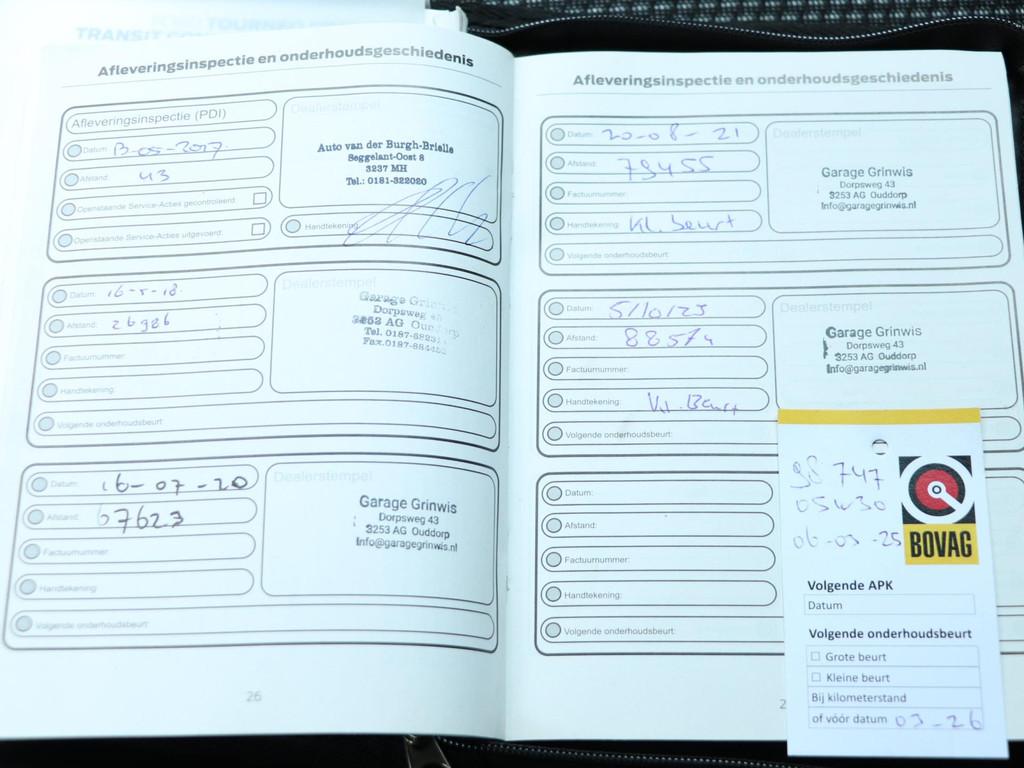 Afleveringsinspectie en onderhoudsgeschiedenis
Afleveringsinspectie (PDI)
Datum: 13-05-2017
Afstand: 43
Openstaande Service-Acties gecontroleerd:
Openstaande Service-Acties uitgevoerd:
Dealerstempel
Auto van der Burgh-Brielle
Seggelant-Oost 8
3237 MH
Tel.: 0181-322020
Handtekening:
Datum: 16-5-18
Afstand: 26926
Factuurnummer:
Handtekening:
Volgende onderhoudsbeurt:
Dealerstempel
Garage
Dorpsweg 43
3253 AG
Tel. 0187-
Fax.0187-
Datum: 16-07-20
Afstand: 67623
Factuurnummer:
Handtekening:
Volgende onderhoudsbeurt:
Dealerstempel
Garage Grinwis
Dorpsweg 43
3253 AG Ouddorp
Info@garagegrinwis.nl
26
Afleveringsinspectie en onderhoudsgeschiedenis
Datum: 20-08-21
Afstand: 79455
Factuurnummer:
Handtekening: Kl. beurt
Volgende onderhoudsbeurt:
Dealerstempel
Garage Grinwis
Dorpsweg 43
3253 AG Ouddorp
Info@garagegrinwis.nl
Datum: 5/10/23
Afstand: 88574
Factuurnummer:
Handtekening: Kl. Beurt
Volgende onderhoudsbeurt:
Dealerstempel
Garage Grinwis
Dorpsweg 43
3253 AG Ouddorp
Info@garagegrinwis.nl
Datum:
Afstand:
Factuurnummer:
Handtekening:
Volgende onderhoudsbeurt:
98 747
05w30
06-03-25
BOVAG
Volgende APK
Datum
Volgende onderhoudsbeurt
Grote beurt
Kleine beurt
Bij kilometerstand
of vóór datum 03-26